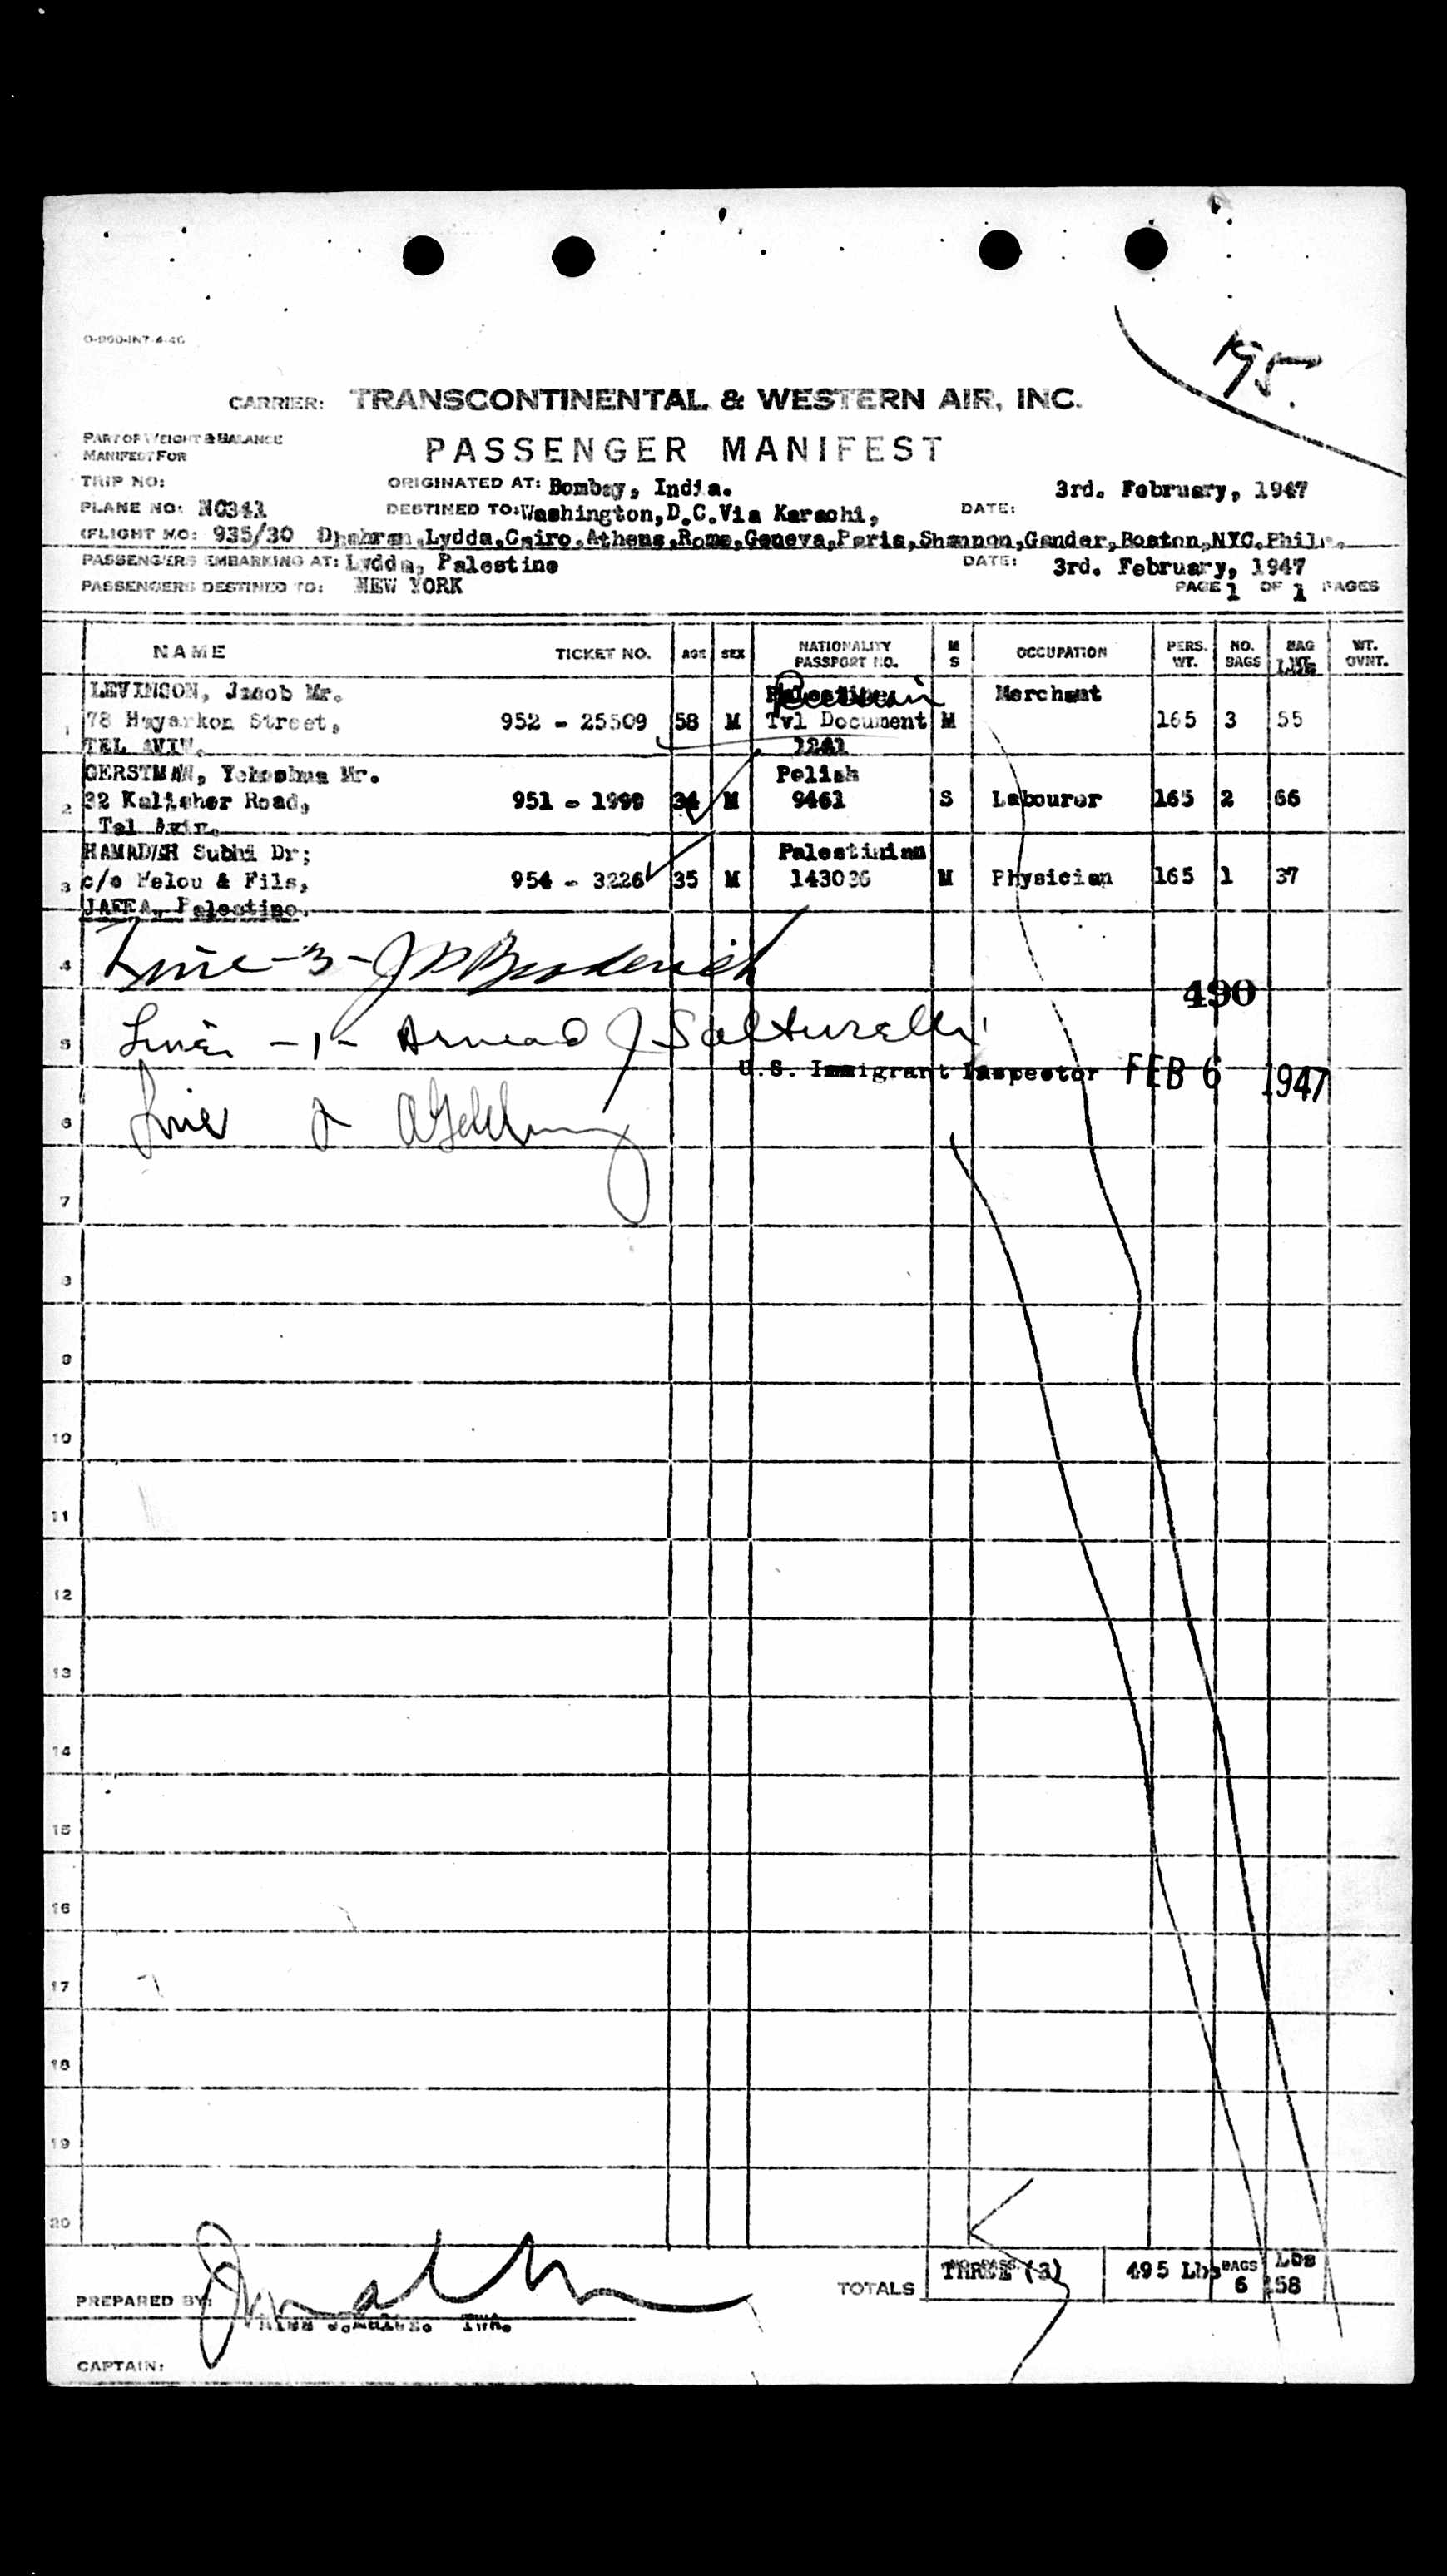 O-990-IN7-4-46
195.
CARRIER: TRANSCONTINENTAL & WESTERN AIR, INC.
PART OF WEIGHT & BALANCE
MANIFEST FOR
PASSENGER MANIFEST
TRIP NO: ORIGINATED AT: Bombay, India. 3rd. February, 1947
PLANE NO: NC341 DESTINED TO: Washington, D.C. Via Karachi, DATE:
(FLIGHT NO: 935/30 Dhahran, Lydda, Cairo, Athens, Rome, Geneva, Paris, Shannon, Gander, Boston, NYC, Phil
PASSENGERS EMBARKING AT: Lydda, Palestine DATE: 3rd. February, 1947
PASSENGERS DESTINED TO: NEW YORK PAGE 1 OF 1 PAGES
NAME TICKET NO. AGE SEX NATIONALITY PASSPORT NO. M S OCCUPATION PERS. WT. NO. BAGS BAG WT. OVNT.
LEVINSON, Jacob Mr. Merchant
1 78 Hayarkon Street, 952 - 25509 58 M Tvl Document M 165 3 55
TEL AVIV. 1241
GERSTMAN, Yehoshua Mr. Polish
2 32 Kalisher Road, 951 - 1999 34 M 9461 S Labourer 165 2 66
Tel Aviv.
HAMADEH Subhi Dr; Palestinian
3 c/o Melou & Fils, 954 - 3226 35 M 143036 M Physician 165 1 37
JAFFA, Palestine.
4 Line - 3 - J Broderick
490
5 Line - 1 - Armand J Salturelli
U.S. Immigrant Inspector FEB 6 1947
6 Line 2
7
8
9
10
11
12
13
14
15
16
17
18
19
20
PREPARED BY: TOTALS THREE (3) 495 Lbs BAGS 6 Lbs 158
CAPTAIN: